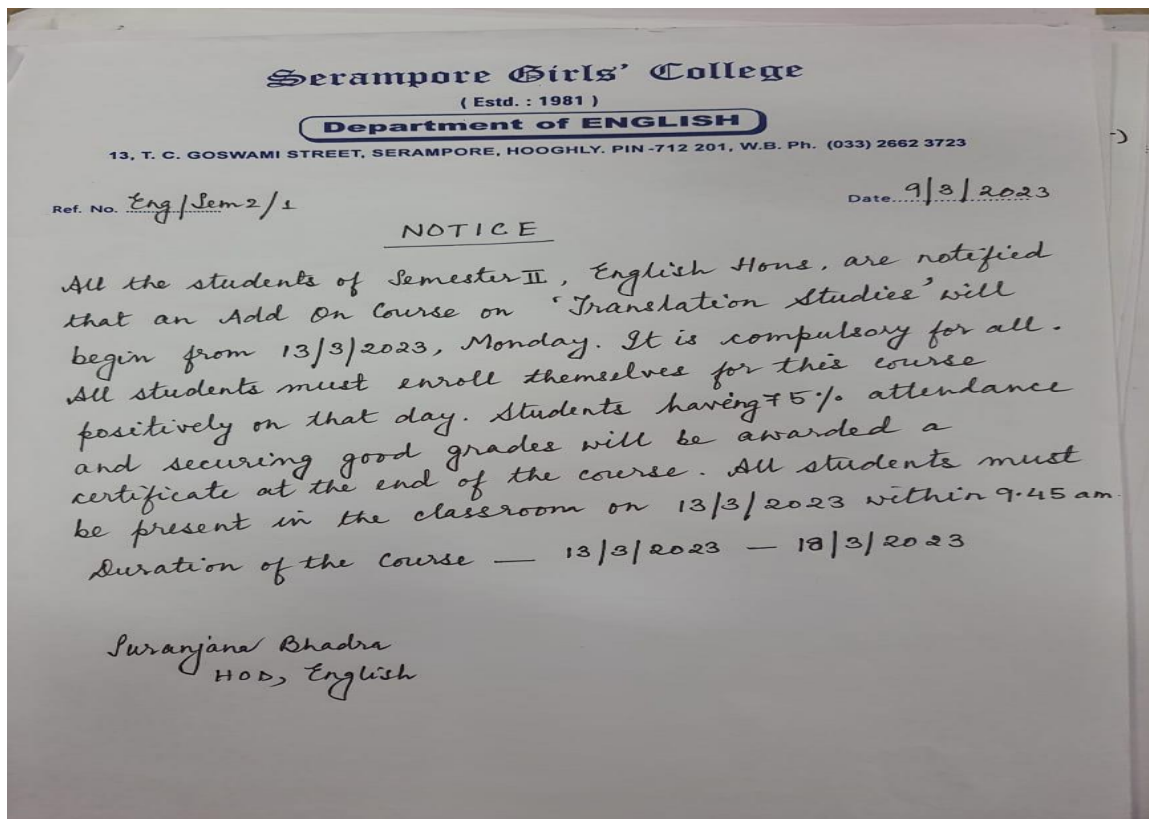 Serampore Girls' College
( Estd. : 1981 )
Department of ENGLISH
13, T. C. GOSWAMI STREET, SERAMPORE, HOOGHLY. PIN -712 201, W.B. Ph. (033) 2662 3723
Ref. No. Eng/Sem2/1 Date 9/3/2023
NOTICE
All the students of Semester II, English Hons, are notified
that an Add On Course on 'Translation Studies' will
begin from 13/3/2023, Monday. It is compulsory for all.
All students must enroll themselves for this course
positively on that day. Students having 75% attendance
and securing good grades will be awarded a
certificate at the end of the course. All students must
be present in the classroom on 13/3/2023 within 9.45 am.
Duration of the Course — 13/3/2023 — 18/3/2023
Suranjana Bhadra
HOD, English